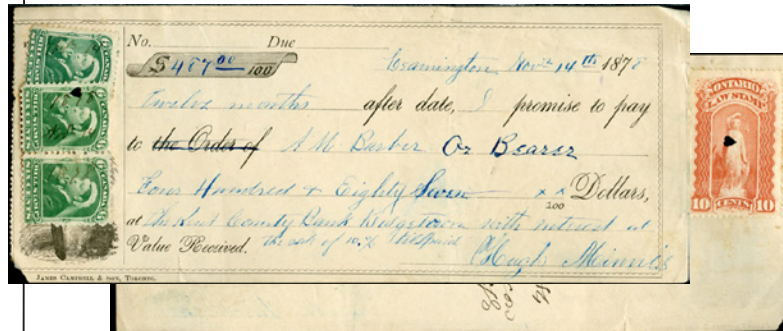 No. Due
$ 487 00/100 Leamington, Nov 14th 1878
Twelve months after date, I promise to pay
to the Order of A M Barber Or Bearer
Four Hundred & Eighty Seven xx/100 Dollars,
at The Kent County Bank Ridgetown with interest at
Value Received. the rate of 10 % till paid
Hugh
JAMES CAMPBELL & SON, TORONTO.
ONTARIO
LAW STAMP
10 CENTS 10